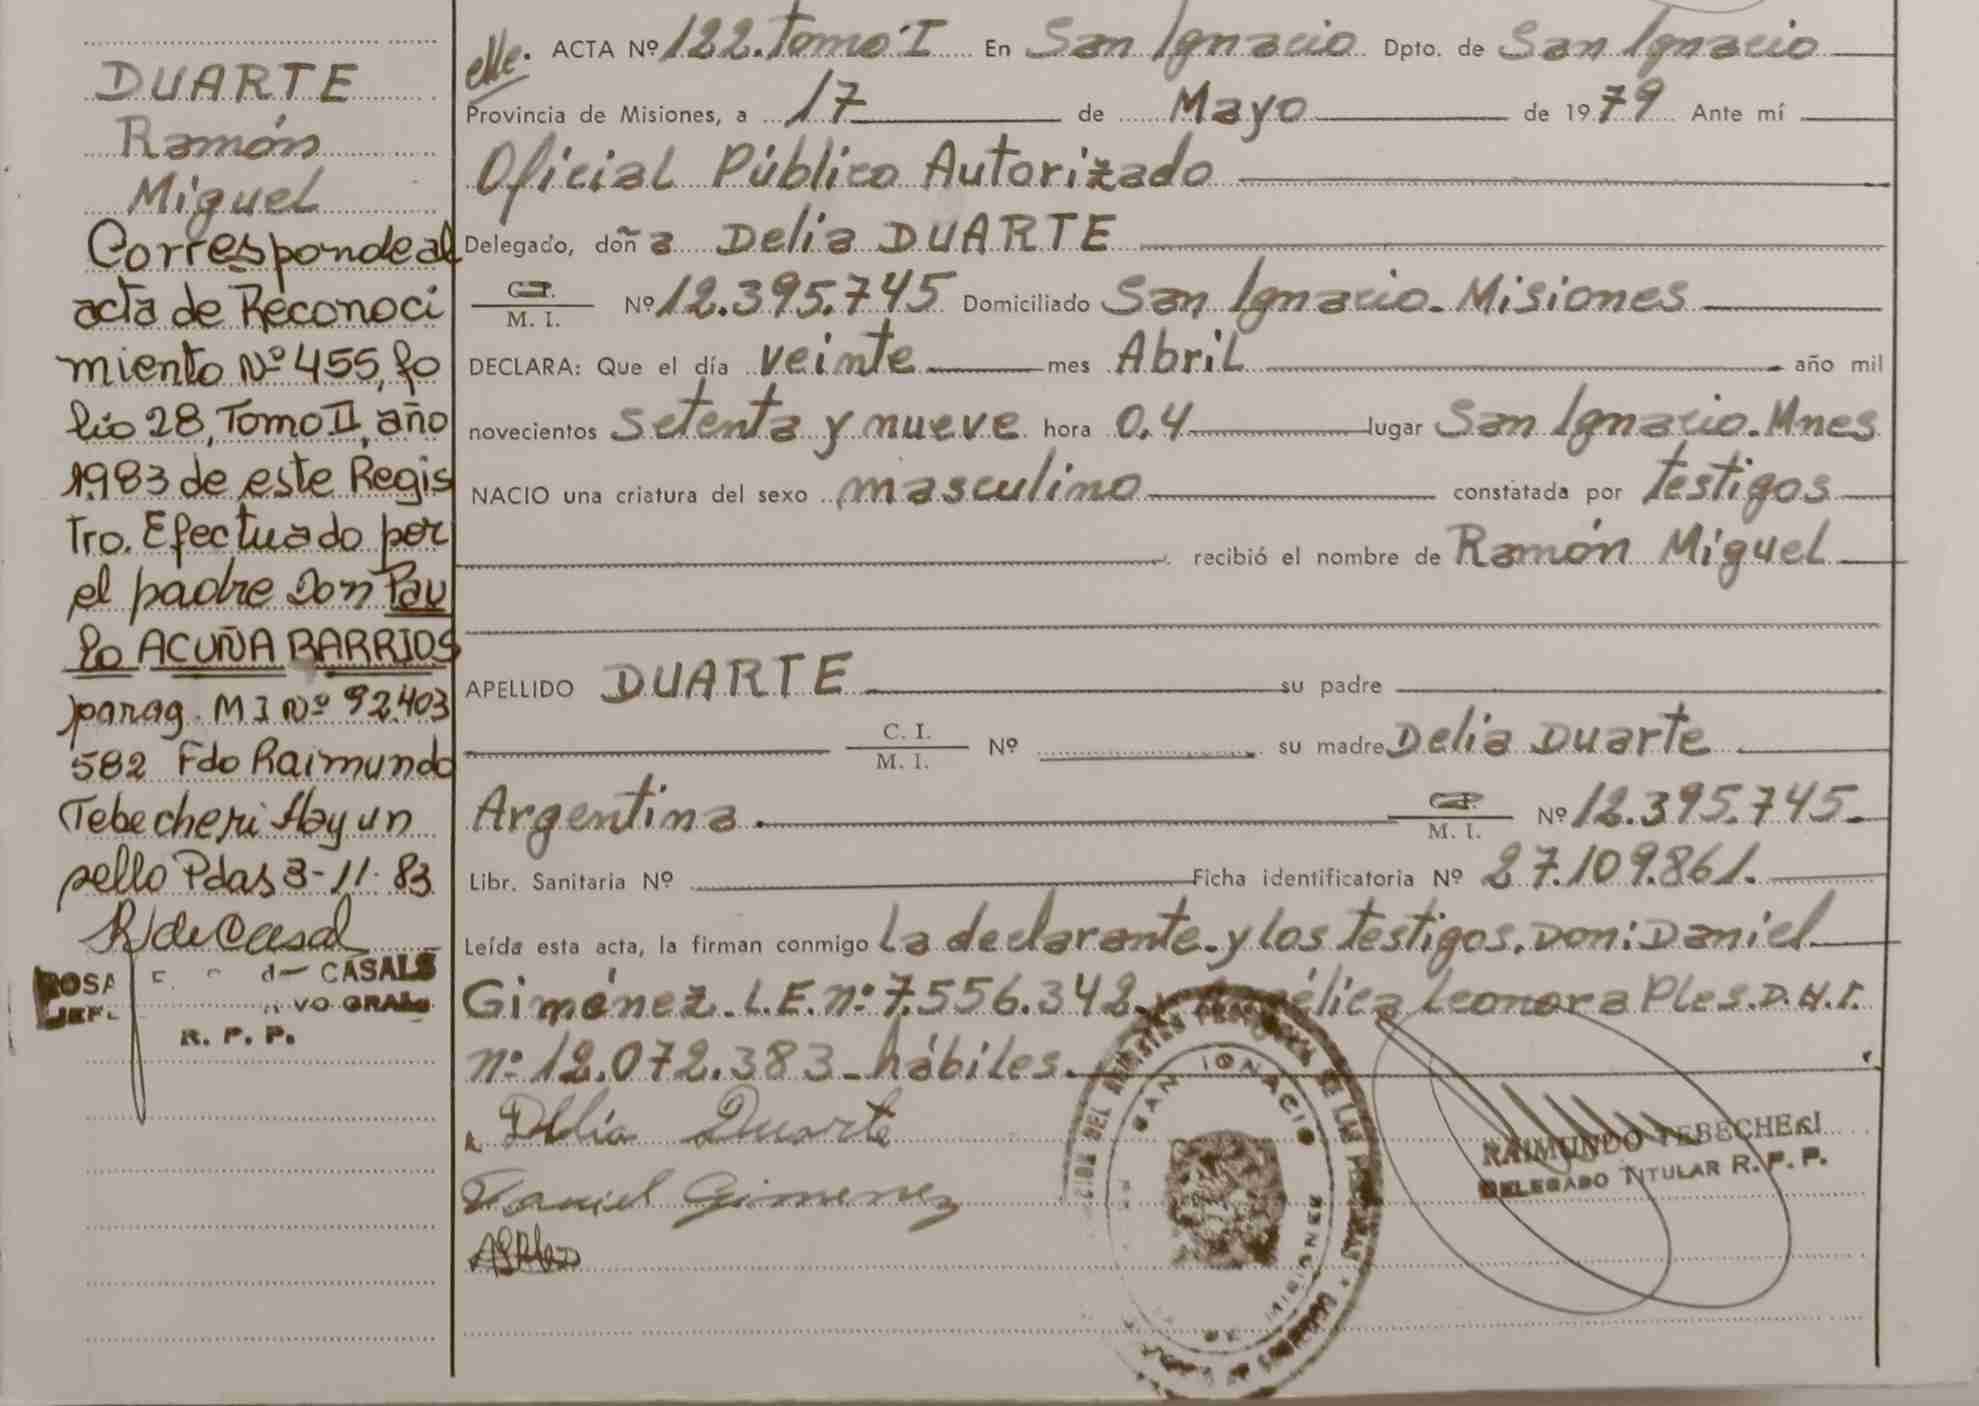 DUARTE
Ramón
Miguel
Corresponde al
acta de Reconoci
miento Nº 455, fo
lio 28, Tomo II, año
1983 de este Regis
tro. Efectuado por
el padre Don Pau
lo ACUÑA BARRIOS
parag. M I Nº 92.403
582 Fdo Raimundo
Tebecheri Hay un
sello Pdas 3-11-83
R de Casal
ROSA CASALS
JEF VO GRAL
R. P. P.
ACTA Nº 122. Tomo I En San Ignacio Dpto. de San Ignacio
Provincia de Misiones, a 17 de Mayo de 1979 Ante mí
Oficial Público Autorizado
Delegado, doña Delia DUARTE
C.I.
M. I. Nº 12.395.745 Domiciliado San Ignacio. Misiones
DECLARA: Que el día veinte mes Abril año mil
novecientos setenta y nueve hora 0,4 lugar San Ignacio. Mnes
NACIO una criatura del sexo masculino constatada por testigos
recibió el nombre de Ramón Miguel
APELLIDO DUARTE su padre
C. I.
M. I. Nº su madre Delia Duarte
Argentina. C.I.
M. I. Nº 12.395.745.
Libr. Sanitaria Nº Ficha identificatoria Nº 27.109.861.
Leída esta acta, la firman conmigo la declarante y los testigos. Don: Daniel
Giménez. L.E. nº 7.556.342 y Angélica Leonora Ples. D.N.I.
nº 12.072.383 hábiles.
Delia Duarte
Daniel Gimenez
SAN IGNACIO
RAIMUNDO TEBECHERI
DELEGADO TITULAR R. P. P.